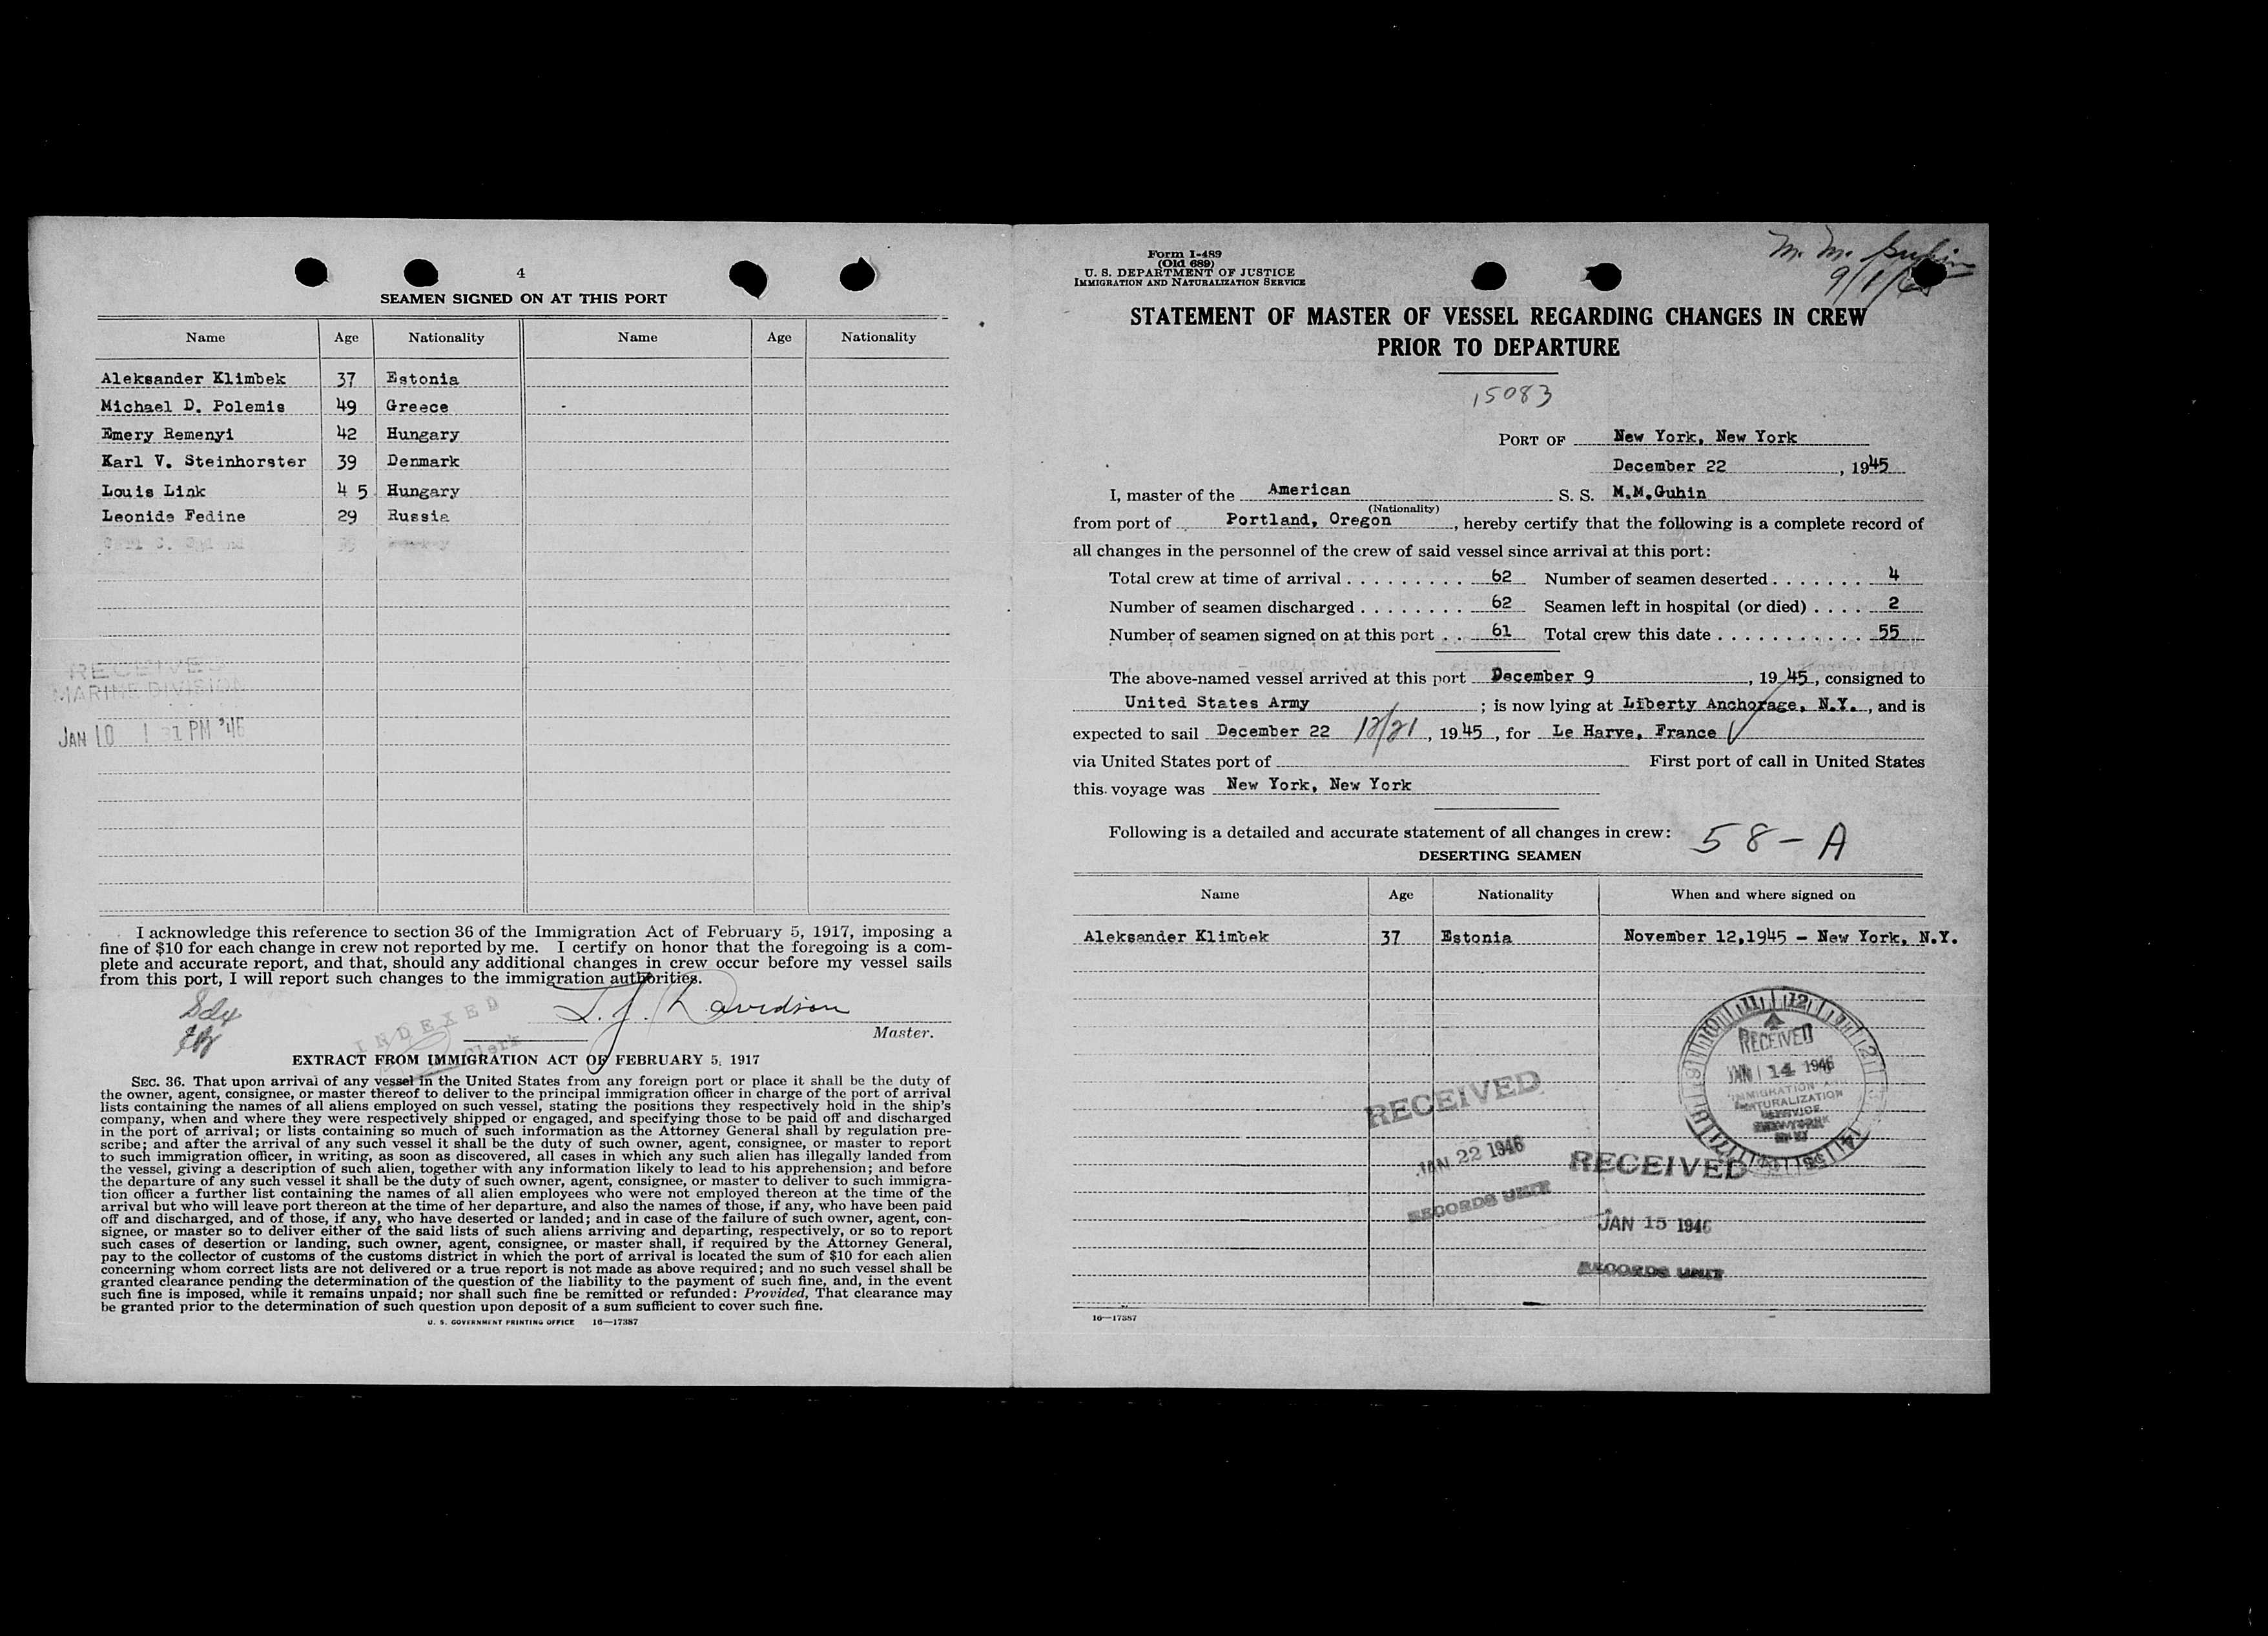 4
SEAMEN SIGNED ON AT THIS PORT
Name Age Nationality Name Age Nationality
Aleksander Klimbek 37 Estonia
Michael D. Polemis 49 Greece
Emery Remenyi 42 Hungary
Karl V. Steinhorster 39 Denmark
Louis Link 4 5 Hungary
Leonids Fedine 29 Russia
RECEIVED
MARINE DIVISION
JAN 10 1 31 PM '46
I acknowledge this reference to section 36 of the Immigration Act of February 5, 1917, imposing a
fine of $10 for each change in crew not reported by me. I certify on honor that the foregoing is a com-
plete and accurate report, and that, should any additional changes in crew occur before my vessel sails
from this port, I will report such changes to the immigration authorities.
Davidson
Master.
INDEXED
Clerk
EXTRACT FROM IMMIGRATION ACT OF FEBRUARY 5, 1917
SEC. 36. That upon arrival of any vessel in the United States from any foreign port or place it shall be the duty of
the owner, agent, consignee, or master thereof to deliver to the principal immigration officer in charge of the port of arrival
lists containing the names of all aliens employed on such vessel, stating the positions they respectively hold in the ship's
company, when and where they were respectively shipped or engaged, and specifying those to be paid off and discharged
in the port of arrival; or lists containing so much of such information as the Attorney General shall by regulation pre-
scribe; and after the arrival of any such vessel it shall be the duty of such owner, agent, consignee, or master to report
to such immigration officer, in writing, as soon as discovered, all cases in which any such alien has illegally landed from
the vessel, giving a description of such alien, together with any information likely to lead to his apprehension; and before
the departure of any such vessel it shall be the duty of such owner, agent, consignee, or master to deliver to such immigra-
tion officer a further list containing the names of all alien employees who were not employed thereon at the time of the
arrival but who will leave port thereon at the time of her departure, and also the names of those, if any, who have been paid
off and discharged, and of those, if any, who have deserted or landed; and in case of the failure of such owner, agent, con-
signee, or master so to deliver either of the said lists of such aliens arriving and departing, respectively, or so to report
such cases of desertion or landing, such owner, agent, consignee, or master shall, if required by the Attorney General,
pay to the collector of customs of the customs district in which the port of arrival is located the sum of $10 for each alien
concerning whom correct lists are not delivered or a true report is not made as above required; and no such vessel shall be
granted clearance pending the determination of the question of the liability to the payment of such fine, and, in the event
such fine is imposed, while it remains unpaid; nor shall such fine be remitted or refunded: Provided, That clearance may
be granted prior to the determination of such question upon deposit of a sum sufficient to cover such fine.
U. S. GOVERNMENT PRINTING OFFICE 16—17387
Form I-489
(Old 689)
U. S. DEPARTMENT OF JUSTICE
IMMIGRATION AND NATURALIZATION SERVICE
M. M. Guhin
STATEMENT OF MASTER OF VESSEL REGARDING CHANGES IN CREW
PRIOR TO DEPARTURE
15083
PORT OF New York, New York
December 22, 1945
I, master of the American S. S. M.M.Guhin
(Nationality)
from port of Portland, Oregon, hereby certify that the following is a complete record of
all changes in the personnel of the crew of said vessel since arrival at this port:
Total crew at time of arrival 62 Number of seamen deserted 4
Number of seamen discharged 62 Seamen left in hospital (or died) 2
Number of seamen signed on at this port 61 Total crew this date 55
The above-named vessel arrived at this port December 9, 1945, consigned to
United States Army; is now lying at Liberty Anchorage, N.Y., and is
expected to sail December 22 12/21, 1945, for Le Harve, France
via United States port of First port of call in United States
this voyage was New York, New York
Following is a detailed and accurate statement of all changes in crew: 58-A
DESERTING SEAMEN
Name Age Nationality When and where signed on
Aleksander Klimbek 37 Estonia November 12,1945 - New York, N.Y.
RECEIVED
JAN 14 1946
IMMIGRATION
NATURALIZATION
SERVICE
RECEIVED
JAN 22 1946
RECORDS UNIT
RECEIVED
JAN 15 1946
RECORDS UNIT
16—17387